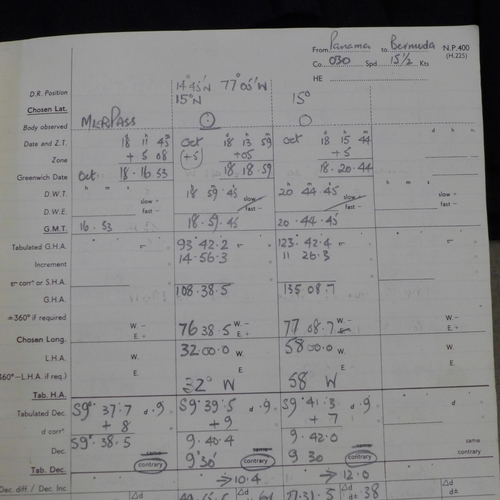 From Panama to Bermuda N.P.400
Co. 030 Spd 15½ Kts (H.225)
HE
D.R. Position 14° 45'N 77° 00'W
Chosen Lat. 15°N 15°
Body observed MERPASS
Date and Z.T. 18 11 45 Oct 18 13 59 Oct 18 15 44 d h m
Zone + 5 08 (+5) +05 +5
Greenwich Date Oct 18.16 53 18 18.59 18.20.44
D.W.T. h m s 18 59 45 slow + 20 44.45 slow +
D.W.E. slow + fast - fast - fast -
G.M.T. 16.53 18.59.45 20.44.45
Tabulated G.H.A. 93° 42.2 123. 42.4
Increment 14.56.3 11 26.3
corrn or S.H.A.
G.H.A. 108.38.5 135 08.7
=360° if required
Chosen Long. W. - E + 76 38.5 W. - E + 77 08.7 W. - W. - E +
L.H.A. W. 32 00.0 W. 58 00.0 W. W.
360°-L.H.A. if req.) E. E. E. E.
Tab. H.A. 32° W 58 W
Tabulated Dec. S9° 37.7 d .9 S9° 39.5 d .9 S9° 41.3 d .9 d
d corrn + 8 +9 + 7
Dec. S9° 38.5 same 9.40.4 same 9.42.0 same same
Tab. Dec. contrary 9° 30' contrary 9 30 contrary contrary
→10.4 → 12.0
Dec diff / Dec Inc Δd Δd Δd 38 Δd